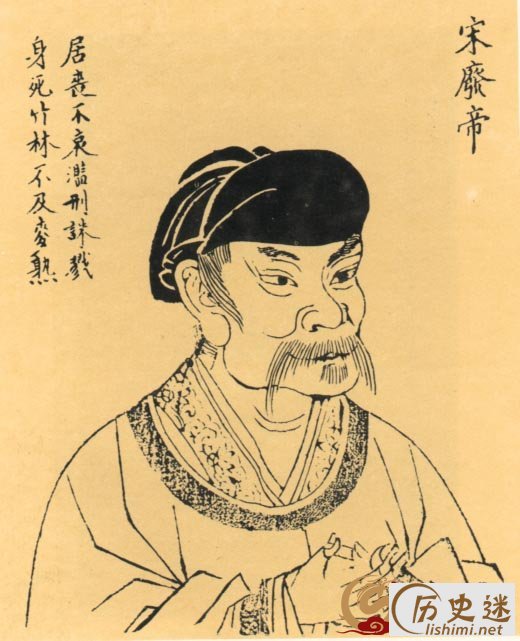 宋廢帝
居喪不哀濫刑誅戮
身死竹林不及麥熟
历史迷
lishimi.net